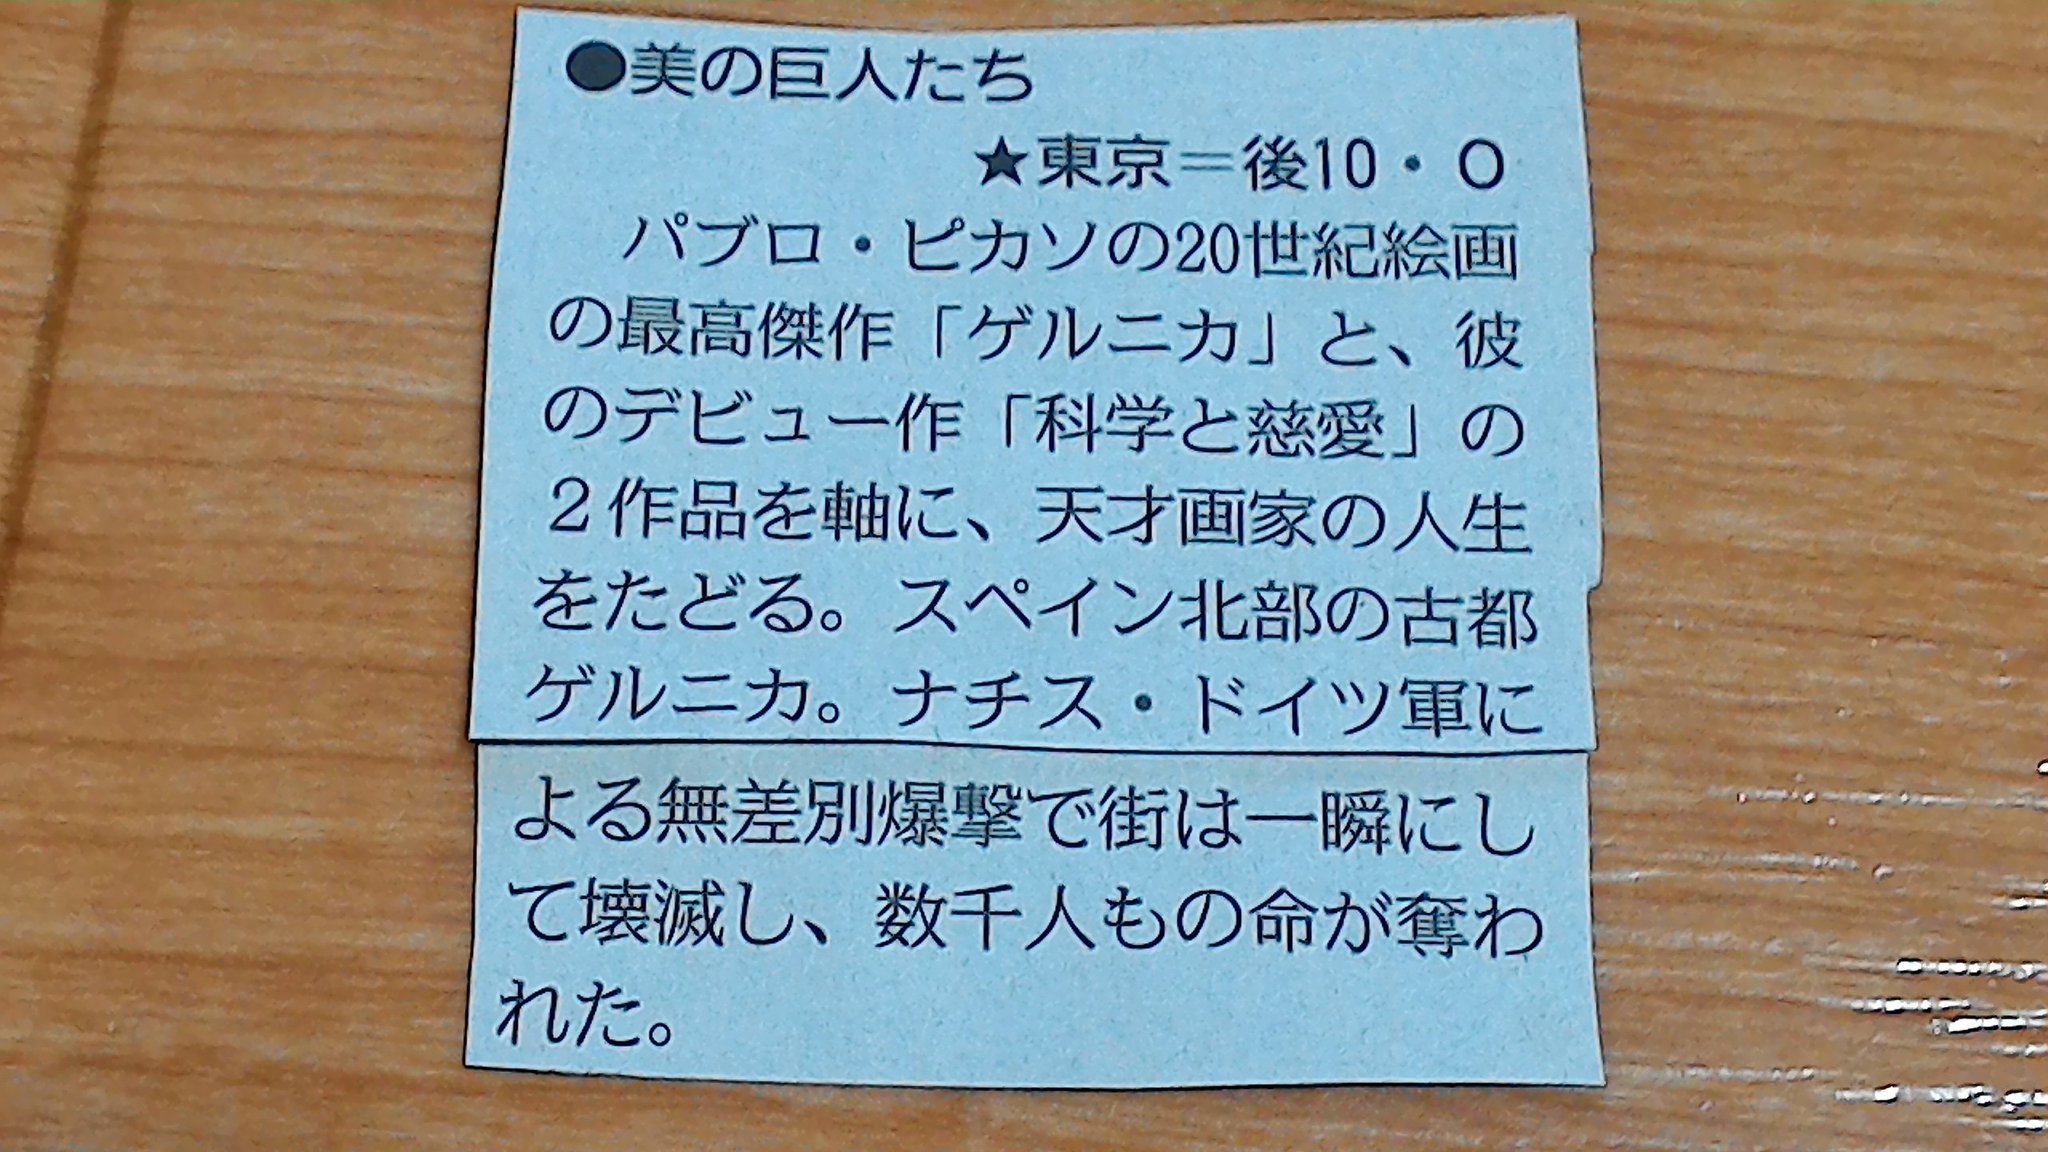 ●美の巨人たち
★東京＝後10・0
パブロ・ピカソの20世紀絵画
の最高傑作「ゲルニカ」と、彼
のデビュー作「科学と慈愛」の
２作品を軸に、天才画家の人生
をたどる。スペイン北部の古都
ゲルニカ。ナチス・ドイツ軍に
よる無差別爆撃で街は一瞬にし
て壊滅し、数千人もの命が奪わ
れた。